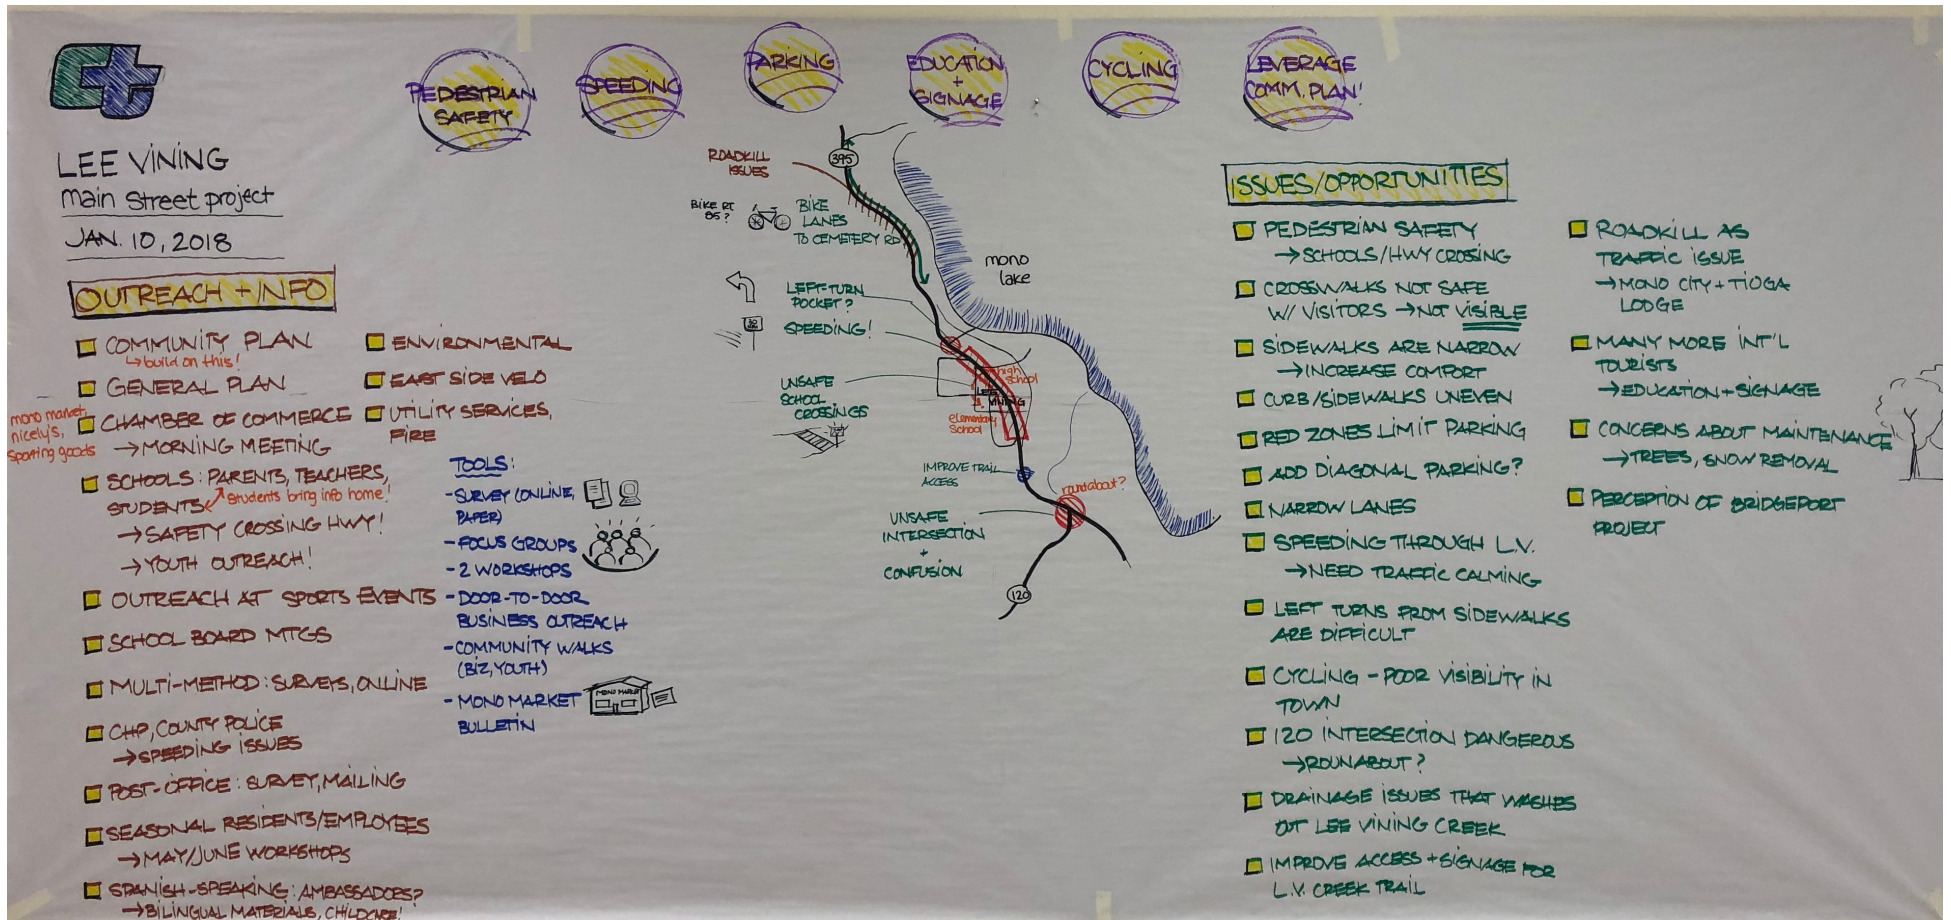 Ct
LEE VINING
main street project
JAN. 10, 2018
PEDESTRIAN
SAFETY
SPEEDING
PARKING
EDUCATION
+
SIGNAGE
CYCLING
LEVERAGE
COMM. PLAN!
OUTREACH + INFO
COMMUNITY PLAN
→ build on this!
GENERAL PLAN
mono market,
nicely's,
sporting goods
CHAMBER OF COMMERCE
→ MORNING MEETING
SCHOOLS: PARENTS, TEACHERS,
STUDENTS
students bring info home!
→ SAFETY CROSSING HWY!
→ YOUTH OUTREACH!
OUTREACH AT SPORTS EVENTS
SCHOOL BOARD MTGS
MULTI-METHOD: SURVEYS, ONLINE
CHP, COUNTY POLICE
→ SPEEDING ISSUES
POST-OFFICE: SURVEY, MAILING
SEASONAL RESIDENTS/EMPLOYEES
→ MAY/JUNE WORKSHOPS
SPANISH-SPEAKING: AMBASSADORS?
→ BILINGUAL MATERIALS, CHILDCARE!
ENVIRONMENTAL
EAST SIDE VELO
UTILITY SERVICES,
FIRE
TOOLS:
- SURVEY (ONLINE,
PAPER)
- FOCUS GROUPS
- 2 WORKSHOPS
- DOOR-TO-DOOR
BUSINESS OUTREACH
- COMMUNITY WALKS
(BIZ, YOUTH)
- MONO MARKET
BULLETIN
MONO MARKET
ROADKILL
ISSUES
395
BIKE RT
85?
BIKE
LANES
TO CEMETERY RD
mono
lake
LEFT-TURN
POCKET?
SPEEDING!
UNSAFE
SCHOOL
CROSSINGS
high
school
LEE
VINING
elementary
school
IMPROVE TRAIL
ACCESS
roundabout?
UNSAFE
INTERSECTION
+
CONFUSION
120
ISSUES/OPPORTUNITIES
PEDESTRIAN SAFETY
→ SCHOOLS/HWY CROSSING
CROSSWALKS NOT SAFE
W/ VISITORS → NOT VISIBLE
SIDEWALKS ARE NARROW
→ INCREASE COMFORT
CURB/SIDEWALKS UNEVEN
RED ZONES LIMIT PARKING
ADD DIAGONAL PARKING?
NARROW LANES
SPEEDING THROUGH L.V.
→ NEED TRAFFIC CALMING
LEFT TURNS FROM SIDEWALKS
ARE DIFFICULT
CYCLING - POOR VISIBILITY IN
TOWN
120 INTERSECTION DANGEROUS
→ ROUNABOUT?
DRAINAGE ISSUES THAT WASHES
OUT LEE VINING CREEK
IMPROVE ACCESS + SIGNAGE FOR
L.V. CREEK TRAIL
ROADKILL AS
TRAFFIC ISSUE
→ MONO CITY + TIOGA
LODGE
MANY MORE INT'L
TOURISTS
→ EDUCATION + SIGNAGE
CONCERNS ABOUT MAINTENANCE
→ TREES, SNOW REMOVAL
PERCEPTION OF BRIDGEPORT
PROJECT